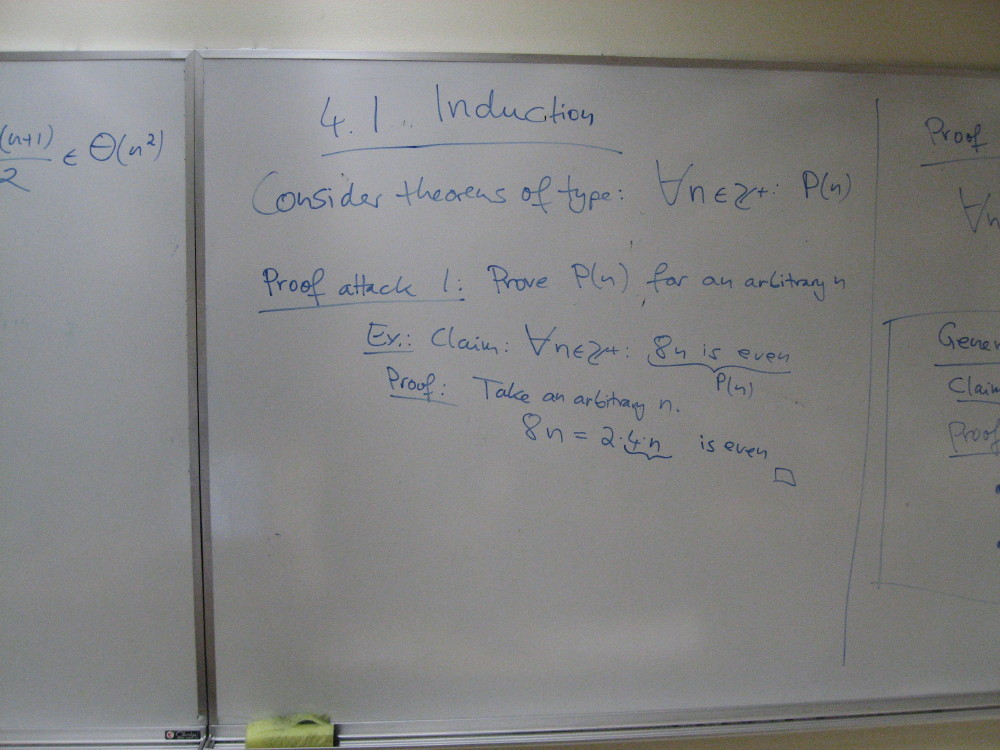 (n+1)
2 ∈ Θ(n²)
4.1.. Induction
Consider theorems of type: ∀n∈ℤ+: P(n)
Proof attack 1: Prove P(n) for an arbitrary n
Ex.: Claim: ∀n∈ℤ+: 8n is even
P(n)
Proof: Take an arbitrary n.
8n = 2·4·n is even
□
Proof
∀n
Gener
Claim
Proof